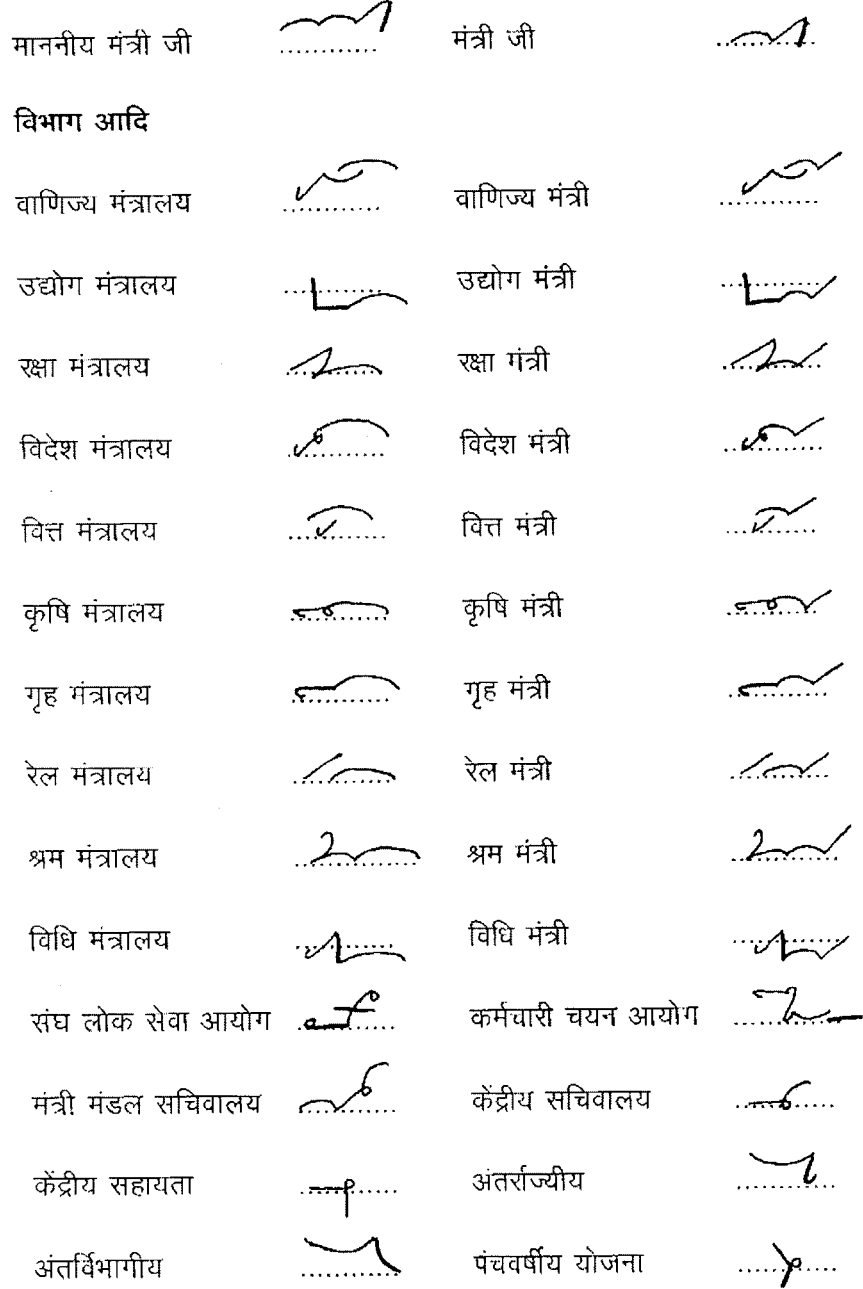 माननीय मंत्री जी मंत्री जी
विभाग आदि
वाणिज्य मंत्रालय वाणिज्य मंत्री
उद्योग मंत्रालय उद्योग मंत्री
रक्षा मंत्रालय रक्षा मंत्री
विदेश मंत्रालय विदेश मंत्री
वित्त मंत्रालय वित्त मंत्री
कृषि मंत्रालय कृषि मंत्री
गृह मंत्रालय गृह मंत्री
रेल मंत्रालय रेल मंत्री
श्रम मंत्रालय श्रम मंत्री
विधि मंत्रालय विधि मंत्री
संघ लोक सेवा आयोग कर्मचारी चयन आयोग
मंत्री मंडल सचिवालय केंद्रीय सचिवालय
केंद्रीय सहायता अंतर्राज्यीय
अंतर्विभागीय पंचवर्षीय योजना